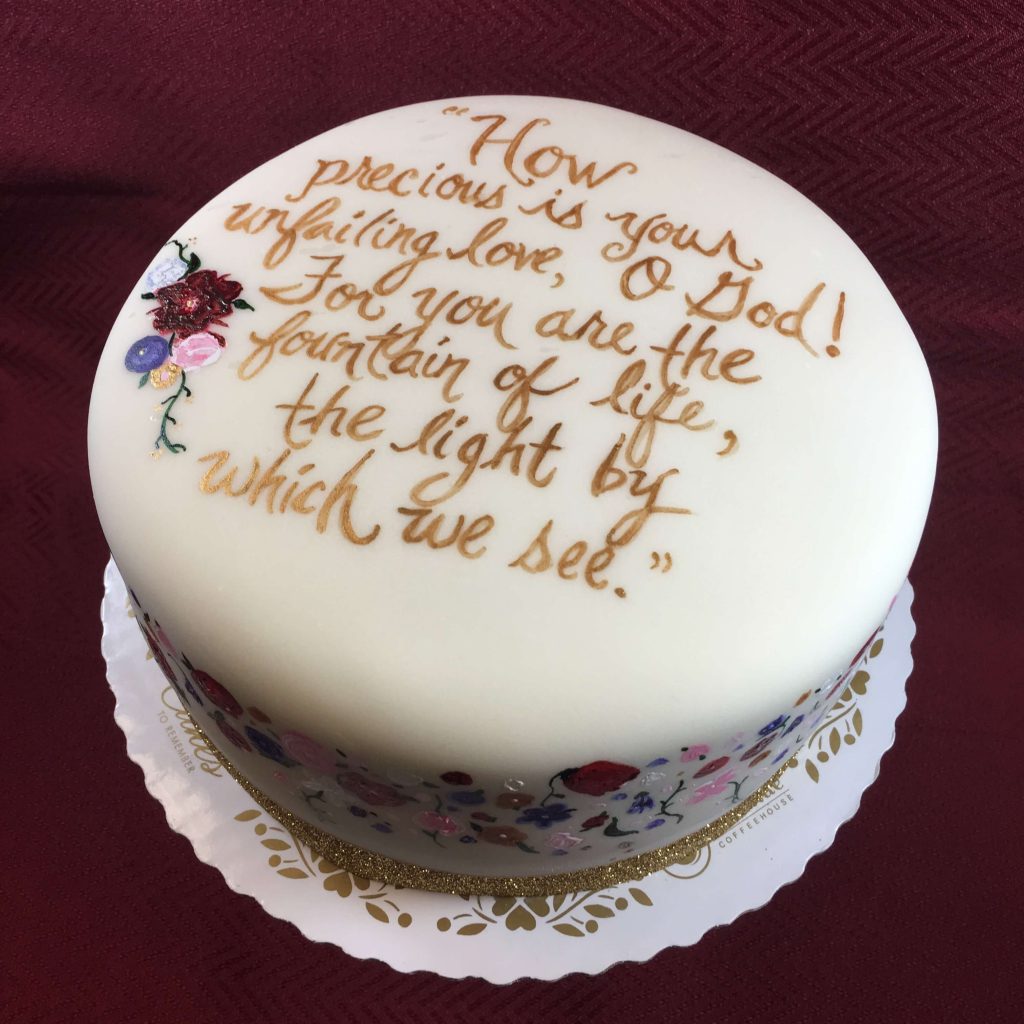 “How
precious is your
unfailing love, O God!
For you are the
fountain of life,
the light by
which we see.”
Cakes
TO REMEMBER
COFFEEHOUSE